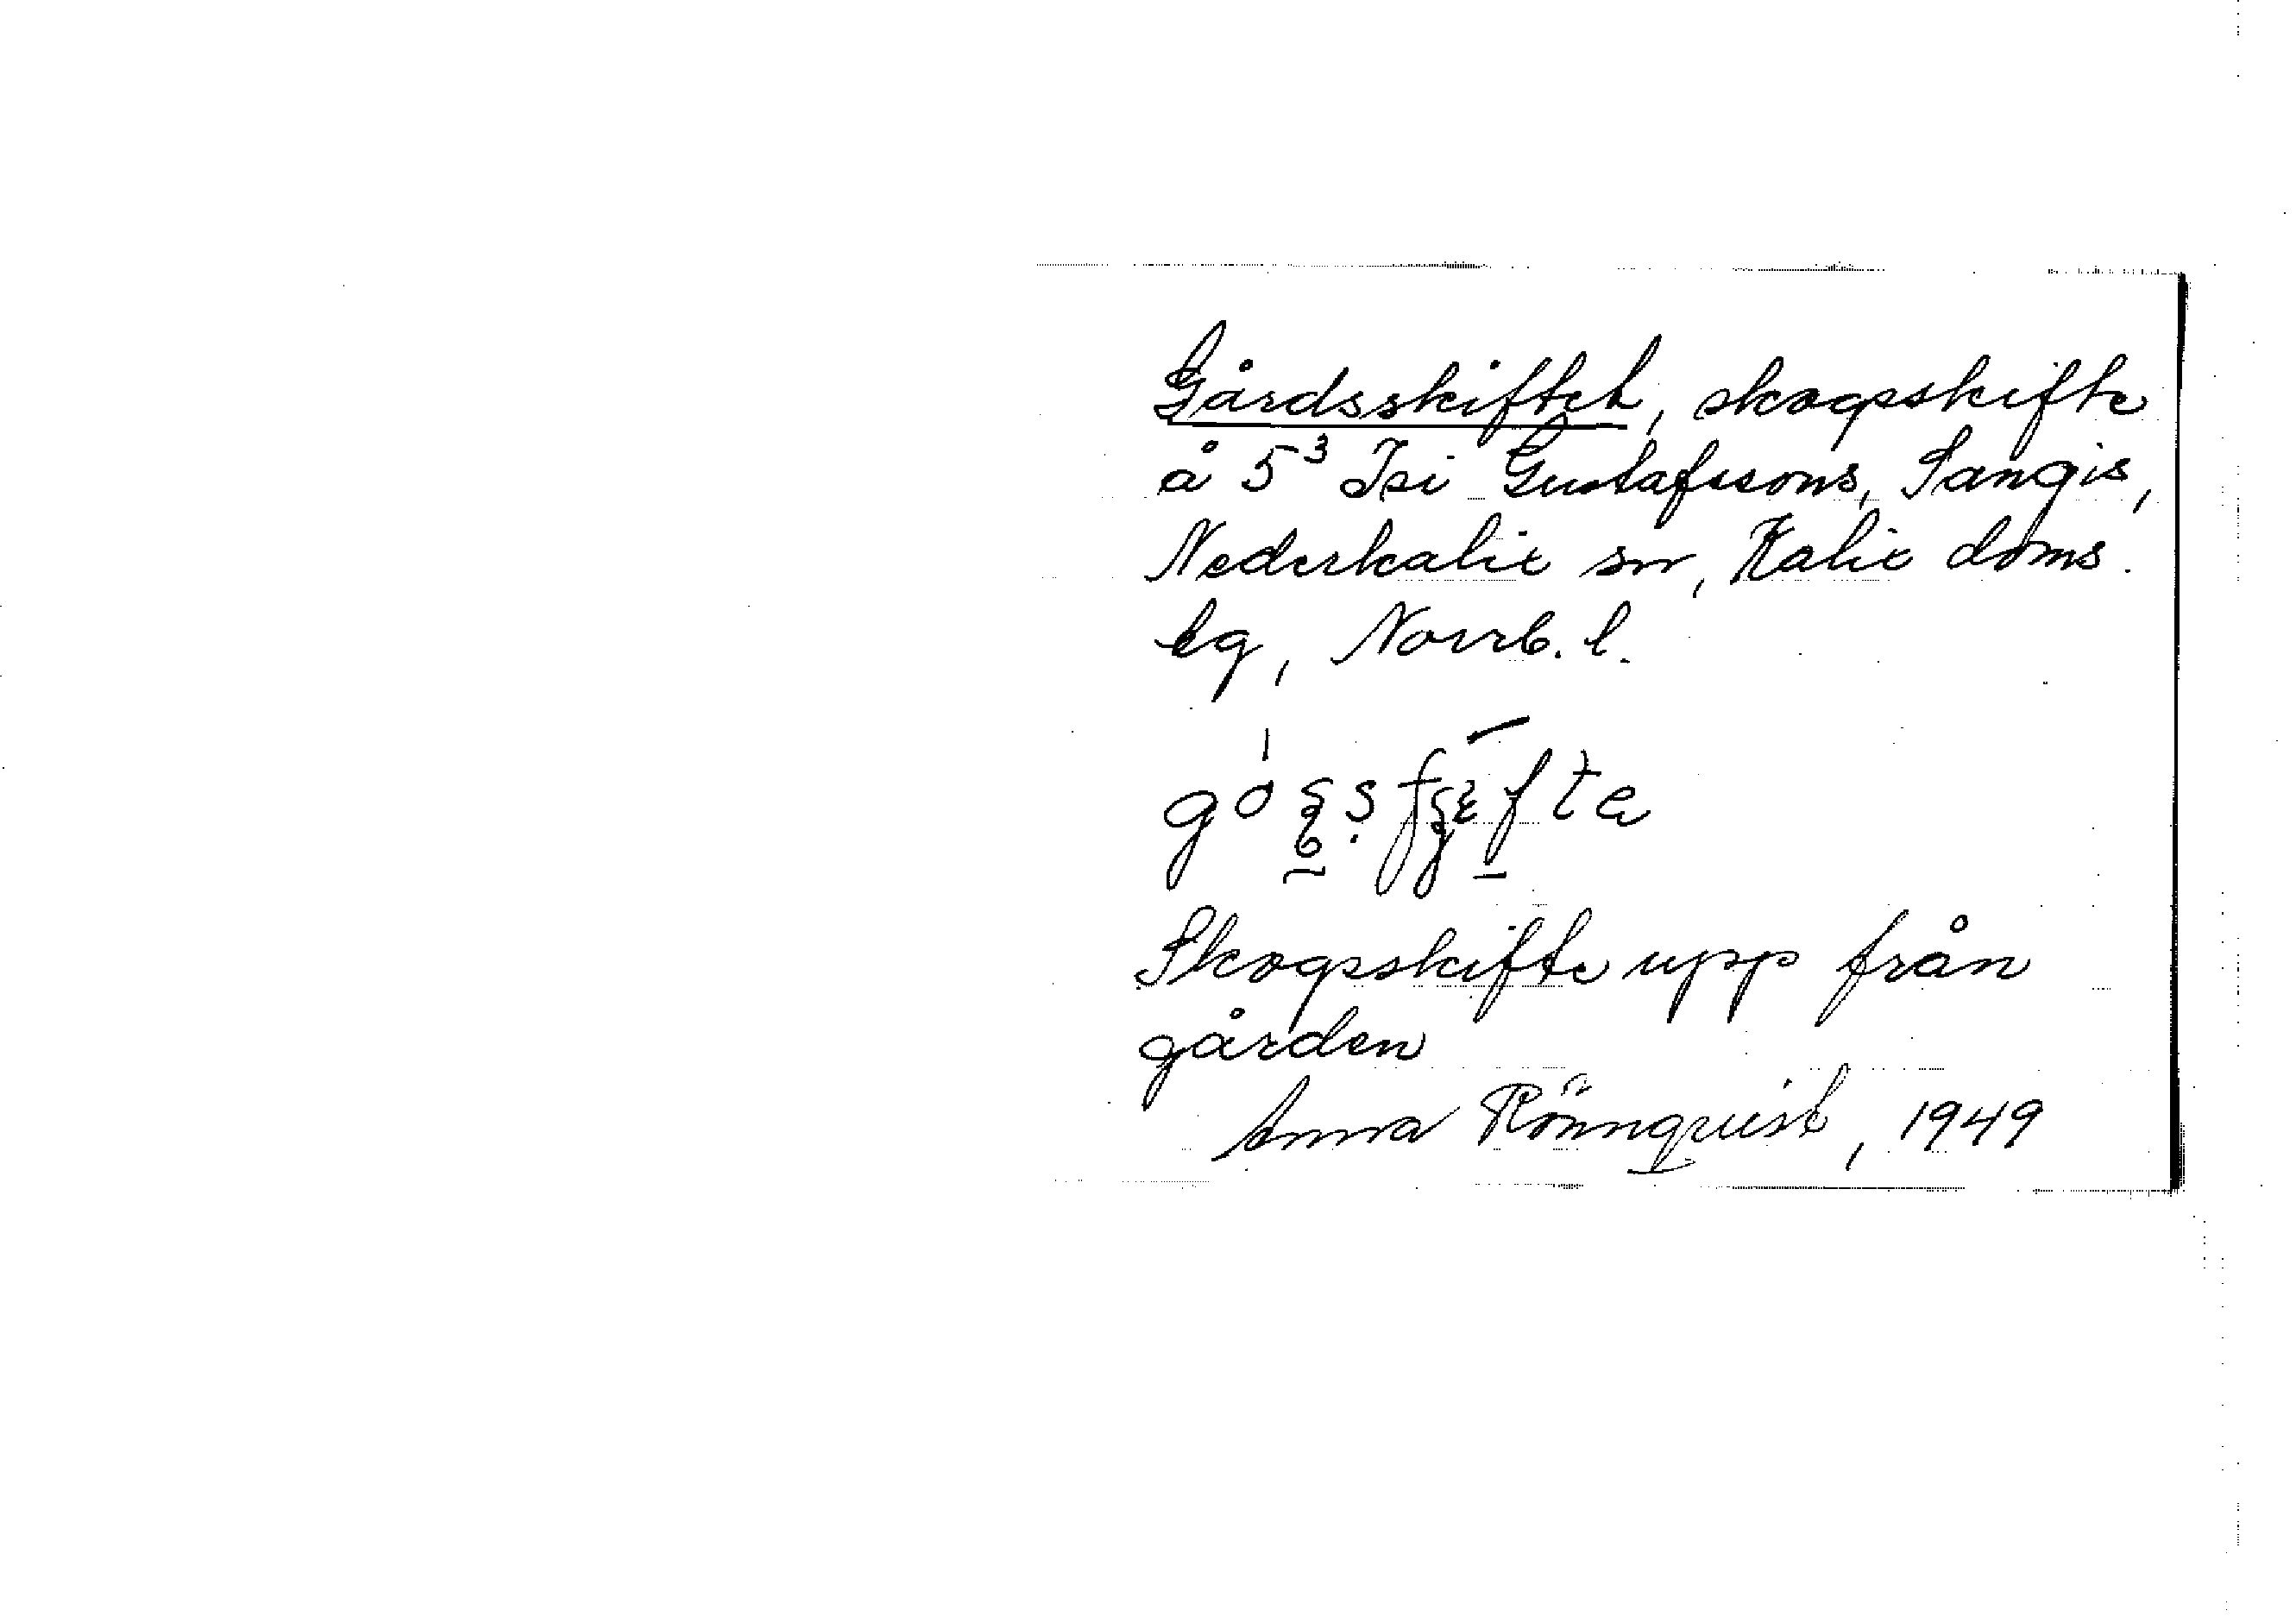 Gårdsskiftet, skogsskifte
å 5³ Isi Gustafssons, Sangis,
Nederkalix sn, Kalix doms.
lg, Norrb. l.
Skogsskifte upp från
gården
Anna Rönnqvist, 1949